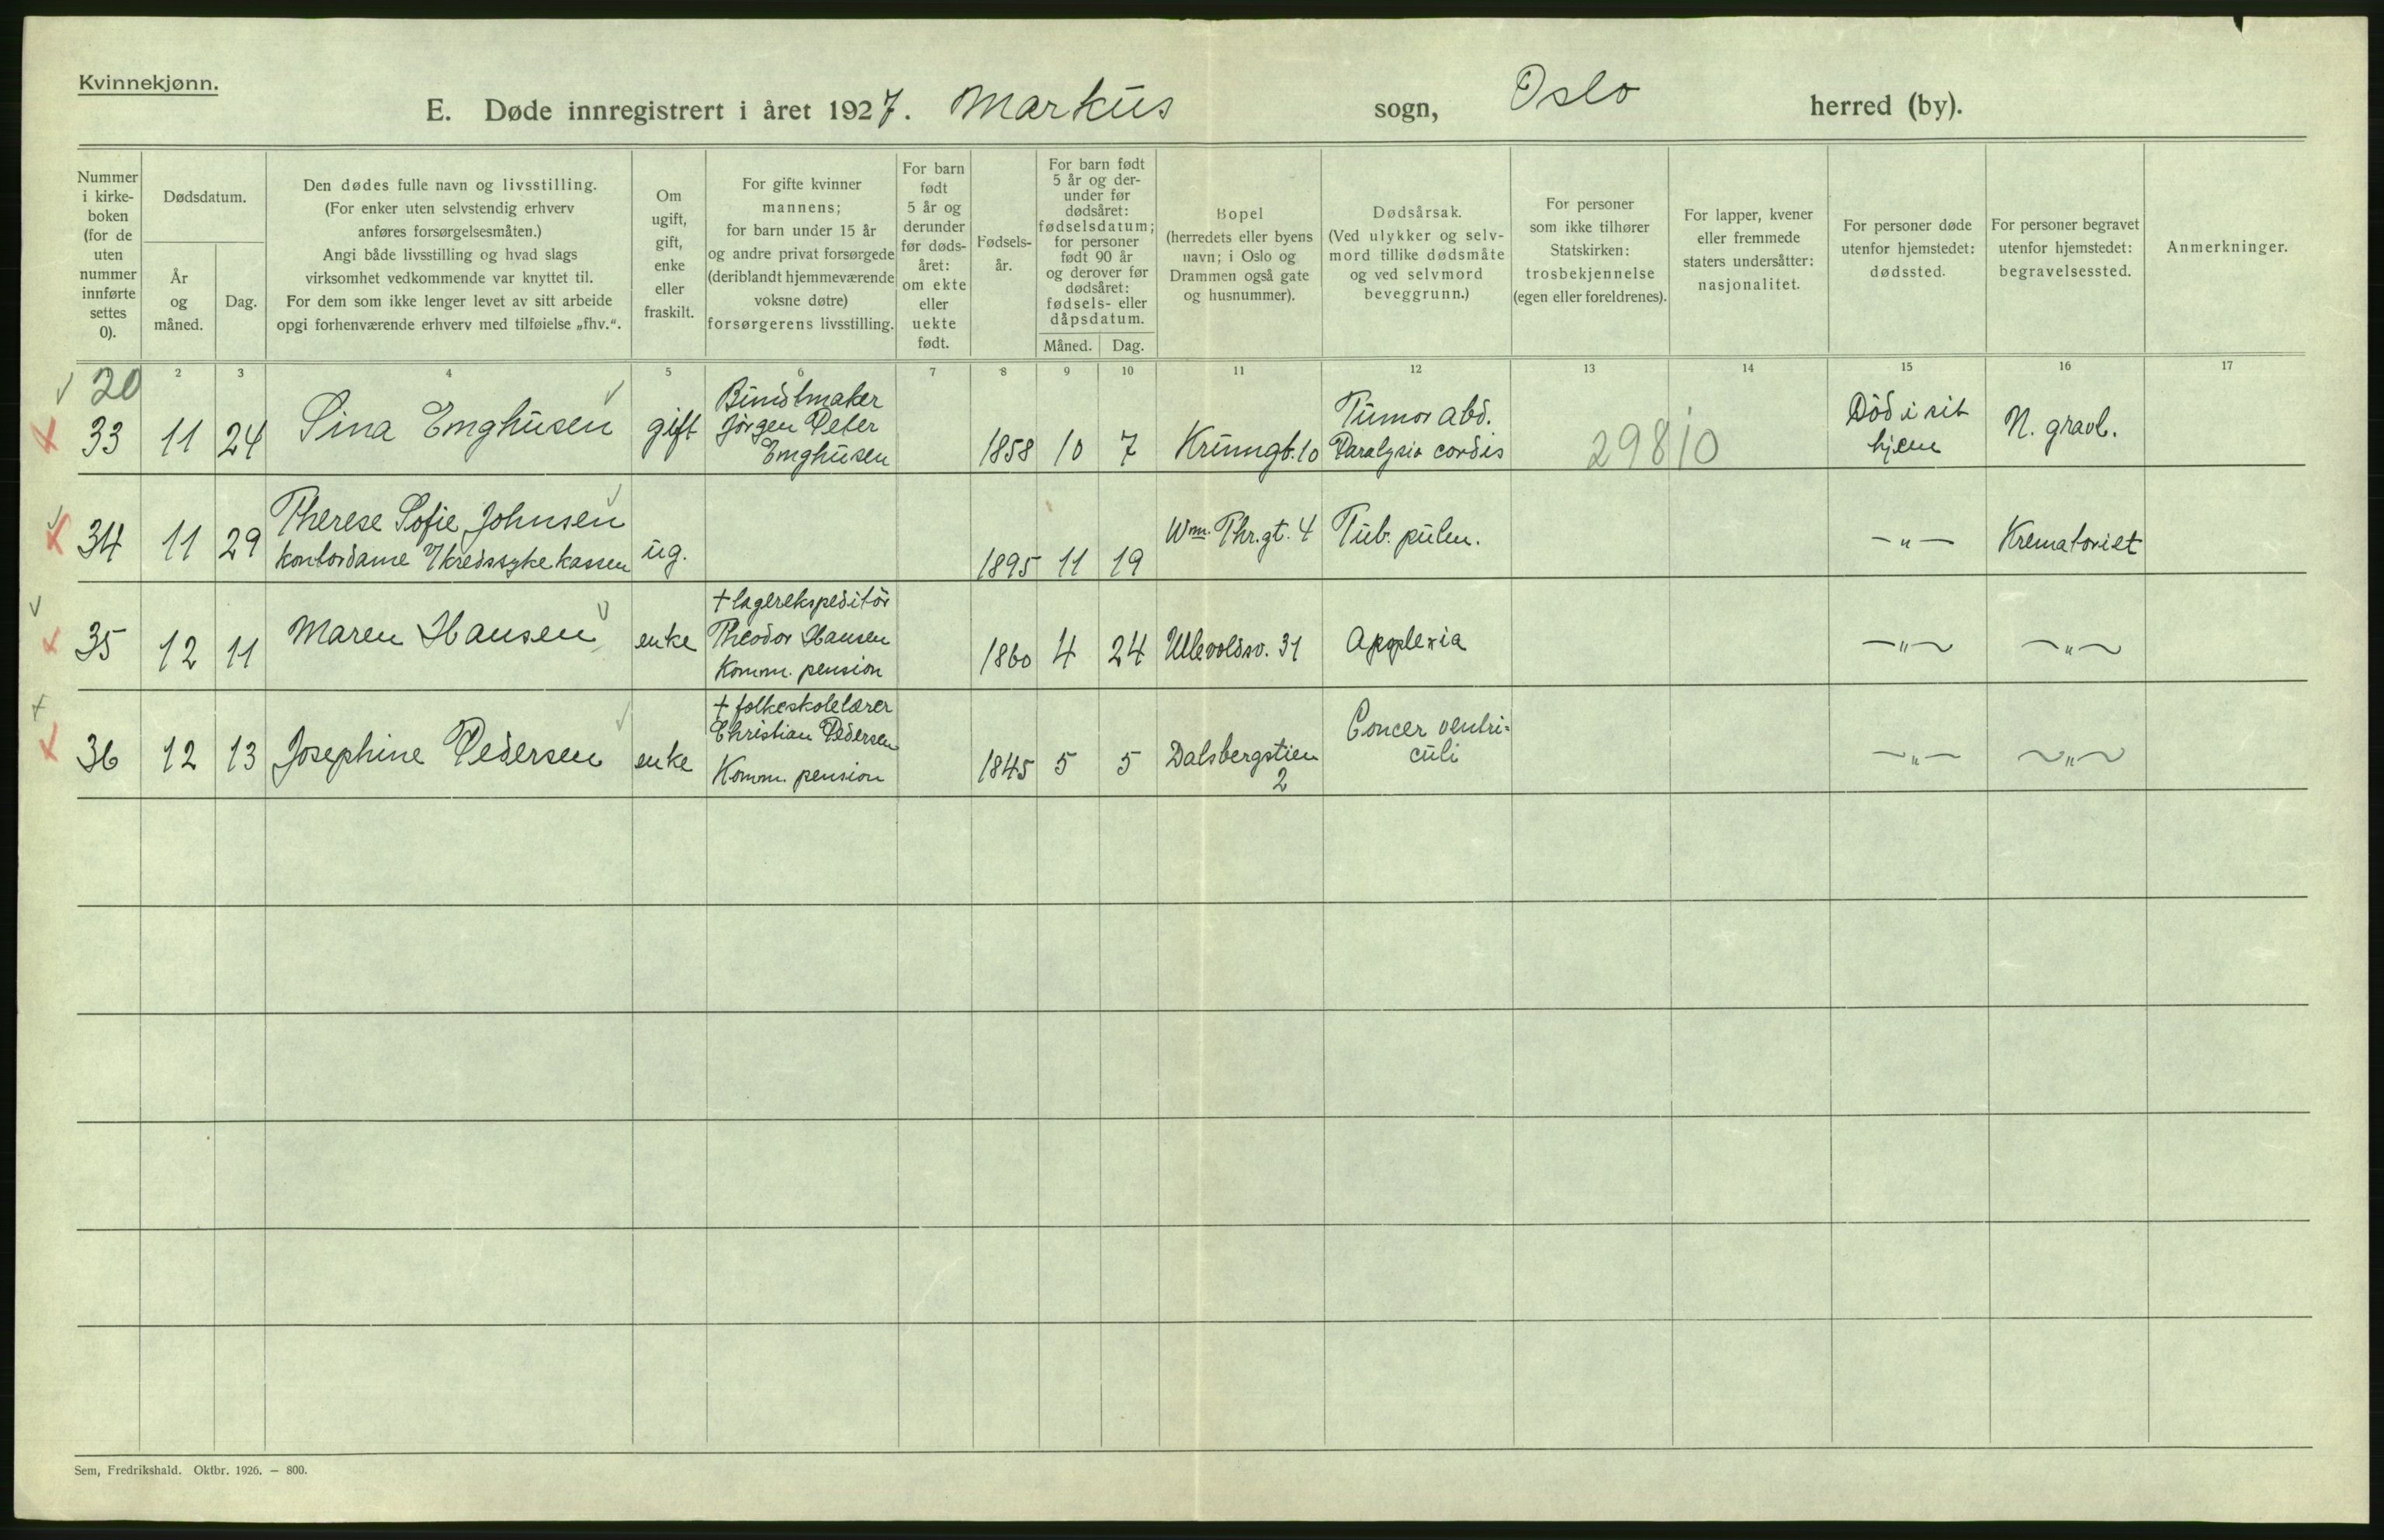 Kvinnekjønn.
E. Døde innregistrert i året 1927. Markus sogn, Oslo herred (by).
Nummer
i kirke-
boken
(for de
uten
nummer
innførte
settes
0).
Dødsdatum.
År
og
måned.
Dag.
Den dødes fulle navn og livsstilling.
(For enker uten selvstendig erhverv
anføres forsørgelsesmåten.)
Angi både livsstilling og hvad slags
virksomhet vedkommende var knyttet til.
For dem som ikke lenger levet av sitt arbeide
opgi forhenværende erhverv med tilføielse „fhv.“.
Om
ugift,
gift,
enke
eller
fraskilt.
For gifte kvinner
mannens;
for barn under 15 år
og andre privat forsørgede
(deriblandt hjemmeværende
voksne døtre)
forsørgerens livsstilling.
For barn
født
5 år og
derunder
før døds-
året:
om ekte
eller
uekte
født.
Fødsels-
år.
For barn født
5 år og der-
under før
dødsåret:
fødselsdatum;
for personer
født 90 år
og derover før
dødsåret:
fødsels- eller
dåpsdatum.
Måned.
Dag.
Bopel
(herredets eller byens
navn; i Oslo og
Drammen også gate
og husnummer).
Dødsårsak.
(Ved ulykker og selv-
mord tillike dødsmåte
og ved selvmord
beveggrunn.)
For personer
som ikke tilhører
Statskirken:
trosbekjennelse
(egen eller foreldrenes).
For lapper, kvener
eller fremmede
staters undersåtter:
nasjonalitet.
For personer døde
utenfor hjemstedet:
dødssted.
For personer begravet
utenfor hjemstedet:
begravelsessted.
Anmerkninger.
2 3 4 5 6 7 8 9 10 11 12 13 14 15 16 17
20
33 11 24 Sina Emghusen gift
Buntmaker
Jörgen Peter
Emghusen
1858 10 7 Krumgt. 10
Tumor abd.
Paralysis cordis
29810
Död i sit
hjem
N. gravl.
34 11 29
Therese Sofie Johnsen
kontordame v/kredssykekassen
ug.
1895 11 19
Wm. Thr.gt. 4
Tub. pulm.
-"-
Krematoriet
35 12 11 Maren Hansen enke
+ lagerekspeditör
Theodor Hansen
Komm. pension
1860 4 24 Ullevoldsv. 31 Apoplexia -"- -"-
36 12 13 Josephine Pedersen enke
+ folkeskolelærer
Christian Pedersen
Komm. pension
1845 5 5
Dalsbergstien
2
Cancer ventri=
culi
-"- -"-
Sem, Fredrikshald. Oktbr. 1926. — 800.